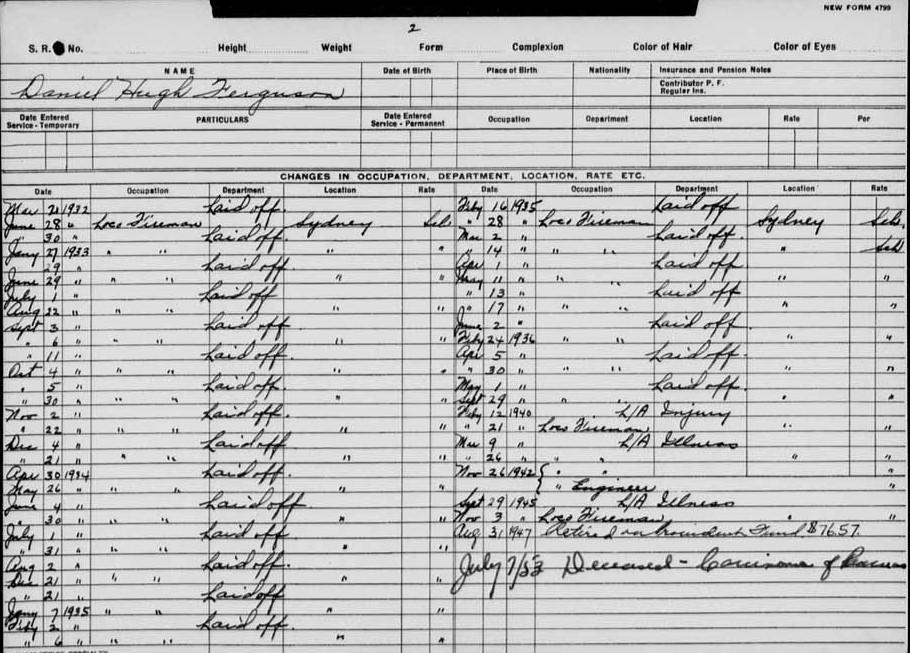 NEW FORM 4799
2
S. R. No. Height Weight Form Complexion Color of Hair Color of Eyes
NAME Date of Birth Place of Birth Nationality Insurance and Pension Notes
Contributor P. F.
Regular Ins.
Daniel Hugh Ferguson
Date Entered Service - Temporary PARTICULARS Date Entered Service - Permanent Occupation Department Location Rate Per
CHANGES IN OCCUPATION, DEPARTMENT, LOCATION, RATE ETC.
Date Occupation Department Location Rate Date Occupation Department Location Rate
Mar 2 1932 Laid off.
June 28 " Loco Fireman Sydney Sch.
" 30 " Laid off.
Jany 27 1933 " " " "
" 29 " Laid off.
June 29 " " " " "
July 1 " Laid off
Aug 22 " " " " "
Sept 3 " Laid off.
" 6 " " " " "
" 11 " Laid off.
Oct 4 " " " " "
" 5 " Laid off.
" 30 " " " " "
Nov 2 " Laid off.
" 22 " " " " "
Dec 4 " Laid off
" 21 " " " " "
Apr 30 1934 Laid off.
May 26 " " " " "
June 4 " Laid off
" 30 " " " " "
July 1 " Laid off
" 31 " " " " "
Aug 2 " Laid off.
Dec 21 " " " " "
" 21 " Laid off
Jany 7 1935 " " "
Feby 2 " Laid off.
" 6 " " " " "
Feby 16 1935 Laid off
" 28 " Loco Fireman Sydney Sch.
Mar 2 " Laid off
" 14 " " " " Sch
Apr 1 " Laid off
May 11 " " " " "
" 13 " Laid off
" 17 " " " " "
June 2 " Laid off.
Feby 24 1936 " " " "
Apr 5 " Laid off.
" 30 " " " " "
May 1 " Laid off.
Sept 29 " " " " "
Feby 12 1940 L/A Injury
" 21 " Loco Fireman " "
Mar 9 " L/A Illness
" 26 " " " " "
Nov 26 1942 { " "
" Engineer "
Sept 29 1945 L/A Illness
Nov 3 " Loco Fireman " "
Aug 31 1947 Retired on Provident Fund $76.57.
July 7/53 Deceased - of